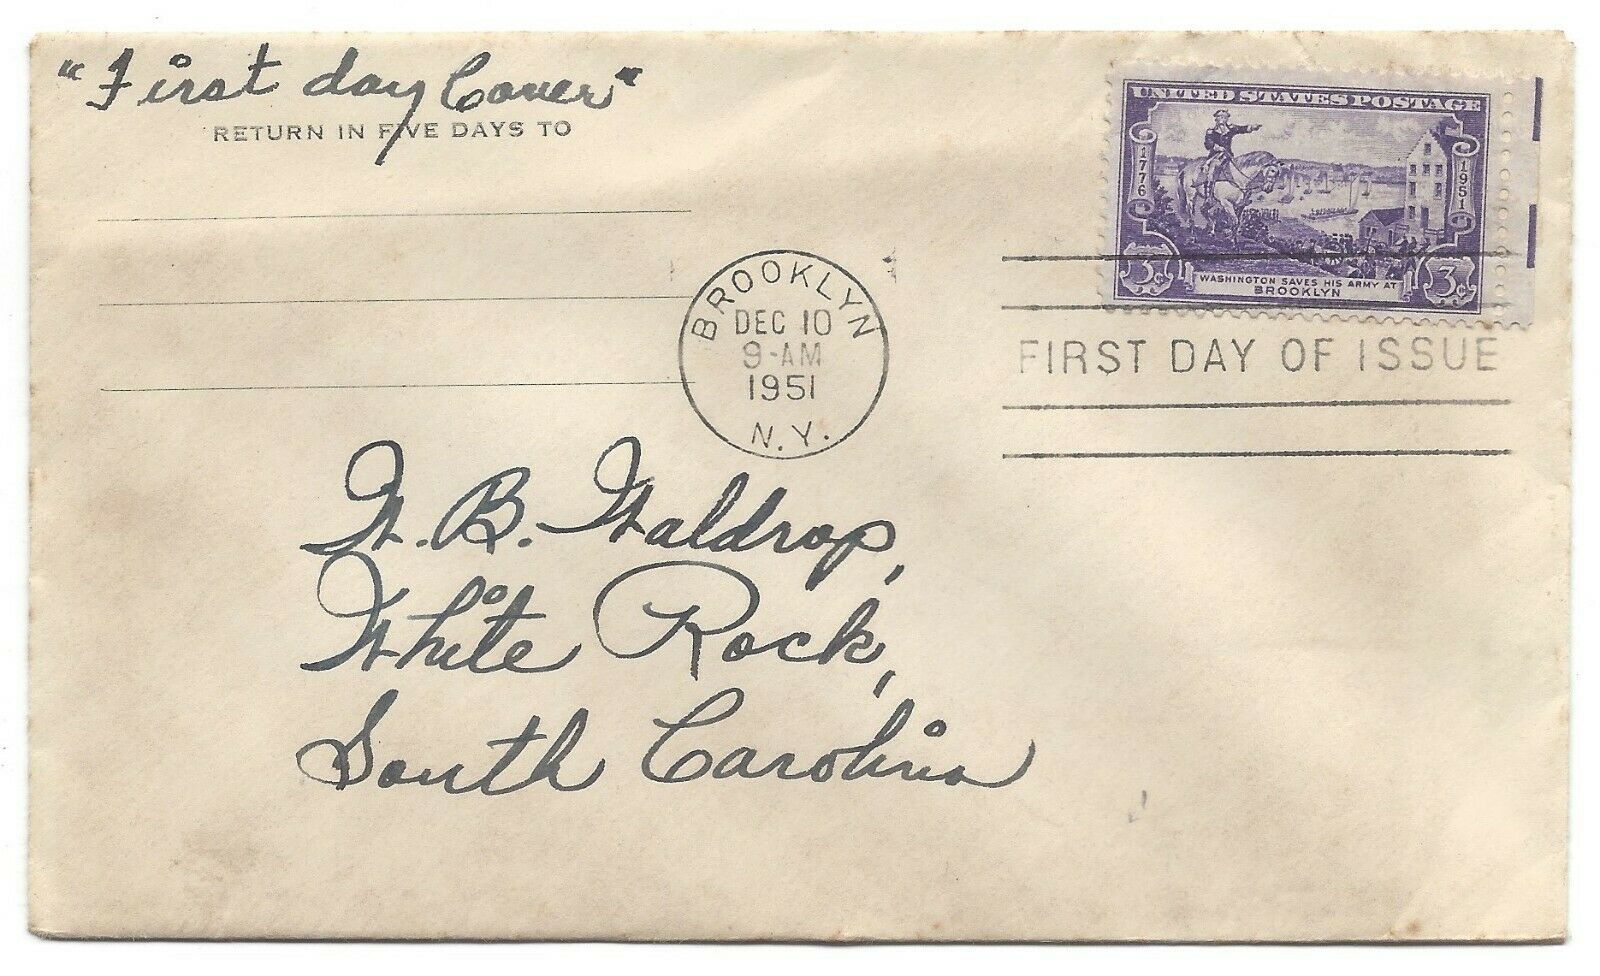 "First day Cover"
RETURN IN FIVE DAYS TO
UNITED STATES POSTAGE
1776
1951
3¢
3¢
WASHINGTON SAVES HIS ARMY AT
BROOKLYN
BROOKLYN
DEC 10
9-AM
1951
N.Y.
FIRST DAY OF ISSUE
W. B. Waldrop,
White Rock,
South Carolina